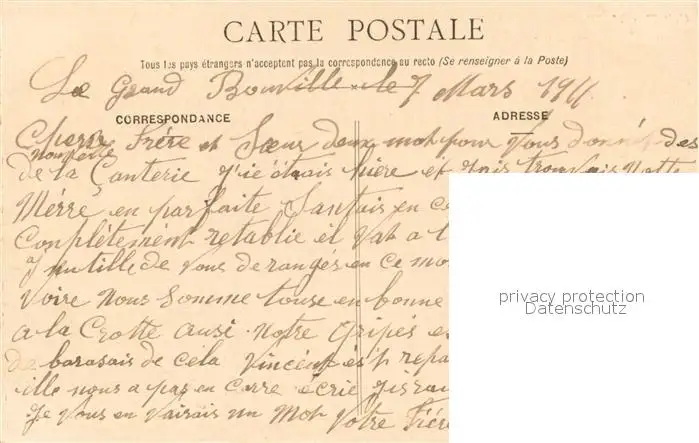 CARTE POSTALE
Tous les pays étrangers n'acceptent pas la correspondance au recto (Se renseigner à la Poste)
Le Grand Bouville le 7 Mars 1911
CORRESPONDANCE
ADRESSE
Cher Frére et Sœur deux mot pour vous donné des
nouvelle
de la Canterie j'ié étais hière et
Mérre en parfaite en ce
Conplètement retablie et Vat a l
inutille de vous deranges en ce mo
voire nous somme touse en bonne
a la Crotte ausi notre Gripés es
de barasais de cela Vincent est repa
ille nous a pas en carre écrie
Je vous en un Mot Votre Frére
privacy protection
Datenschutz